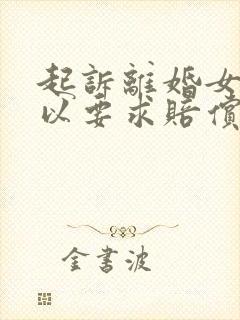 起訴離婚女
以要求賠償
金書波